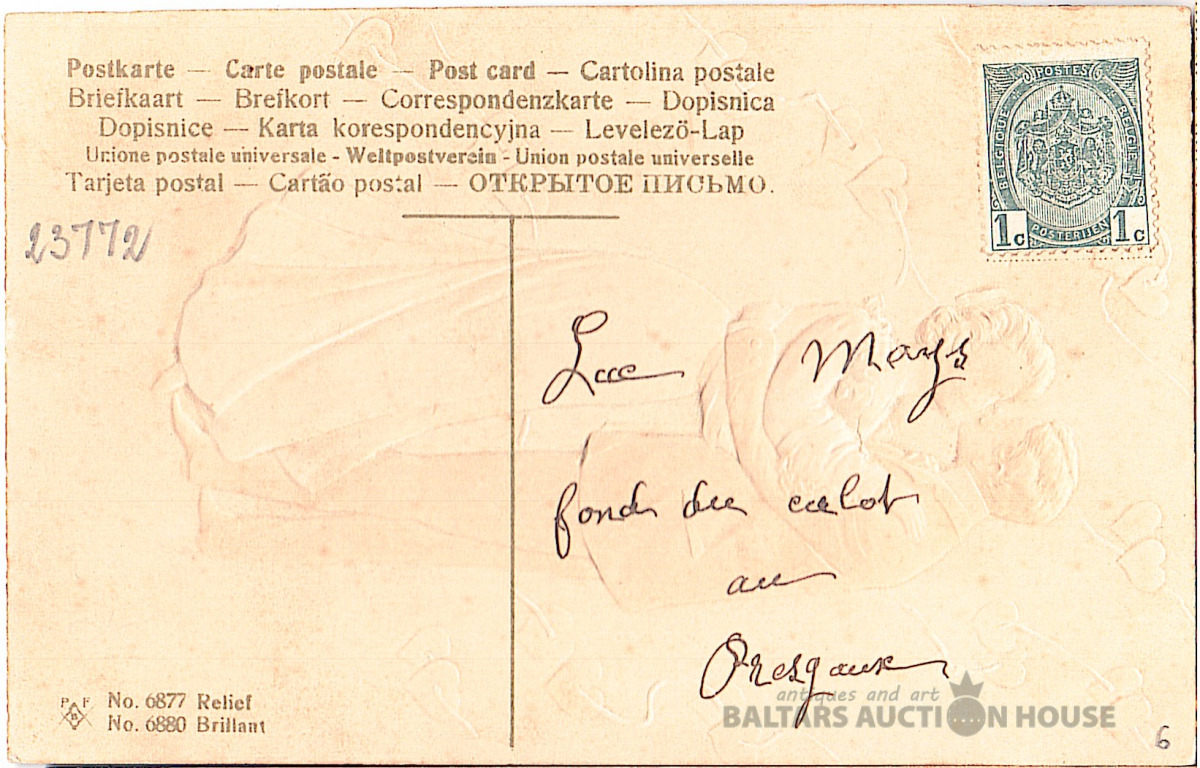 Postkarte — Carte postale — Post card — Cartolina postale
Briefkaart — Brefkort — Correspondenzkarte — Dopisnica
Dopisnice — Karta korespondencyjna — Levelező-Lap
Unione postale universale - Weltpostverein - Union postale universelle
Tarjeta postal — Cartão postal — ОТКРЫТОЕ ПИСЬМО.
POSTES
BELGIQUE
BELGIË
1c POSTERIJEN 1c
23772
Luc Mays
fond du culot
au
P F
B
No. 6877 Relief
No. 6880 Brillant
antiques and art
BALTARS AUCTION HOUSE
6